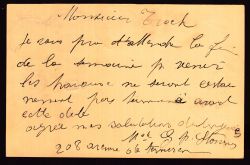 Monsieur Troch
je vous prie d'attendre la fin
de la semaine p venir
les travaux ne seront certai
nement pas terminé avant
cette date
agréé mes salutations distinguées
Mad G. M.
208 avenue de